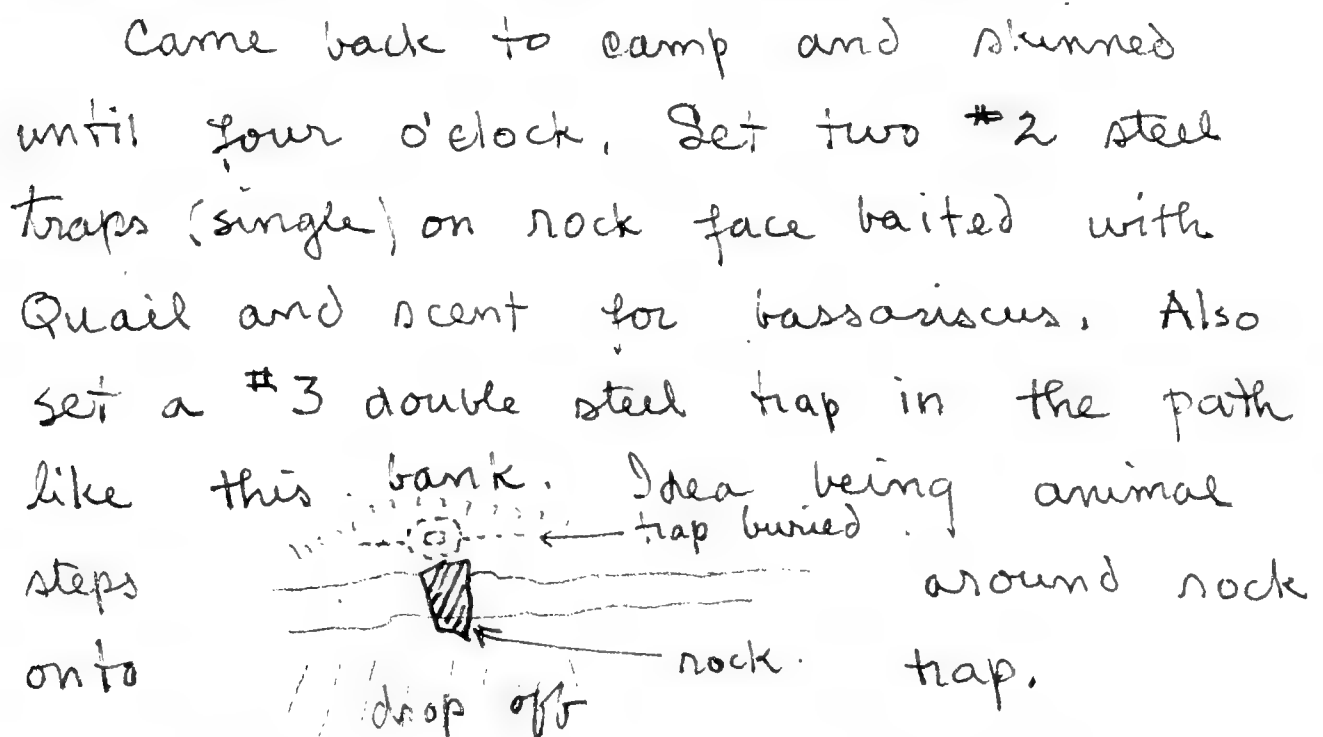 Came back to camp and skinned
until four o'clock. Set two #2 steel
traps (single) on rock face baited with
Quail and scent for bassariscus. Also
set a #3 double steel trap in the path
like this. bank. Idea being animal
trap buried.
steps around rock
onto rock. trap.
drop off